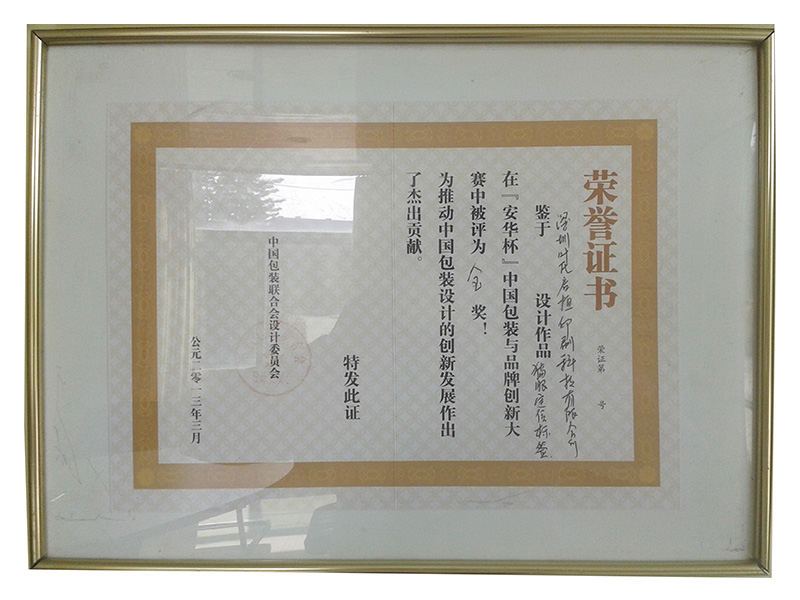 荣誉证书
荣证第 号
深圳时代 印刷科技有限公司
鉴于 设计作品 猫眼定位标签
在『安华杯』中国包装与品牌创新大
赛中被评为 金 奖！
为推动中国包装设计的创新发展作出
了杰出贡献。
特发此证
中国包装联合会设计委员会
公元二零一三年三月